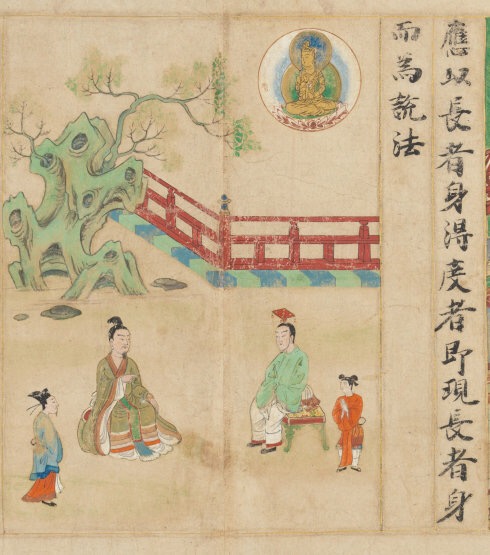 應以長者身得度者即現長者身
而為說法